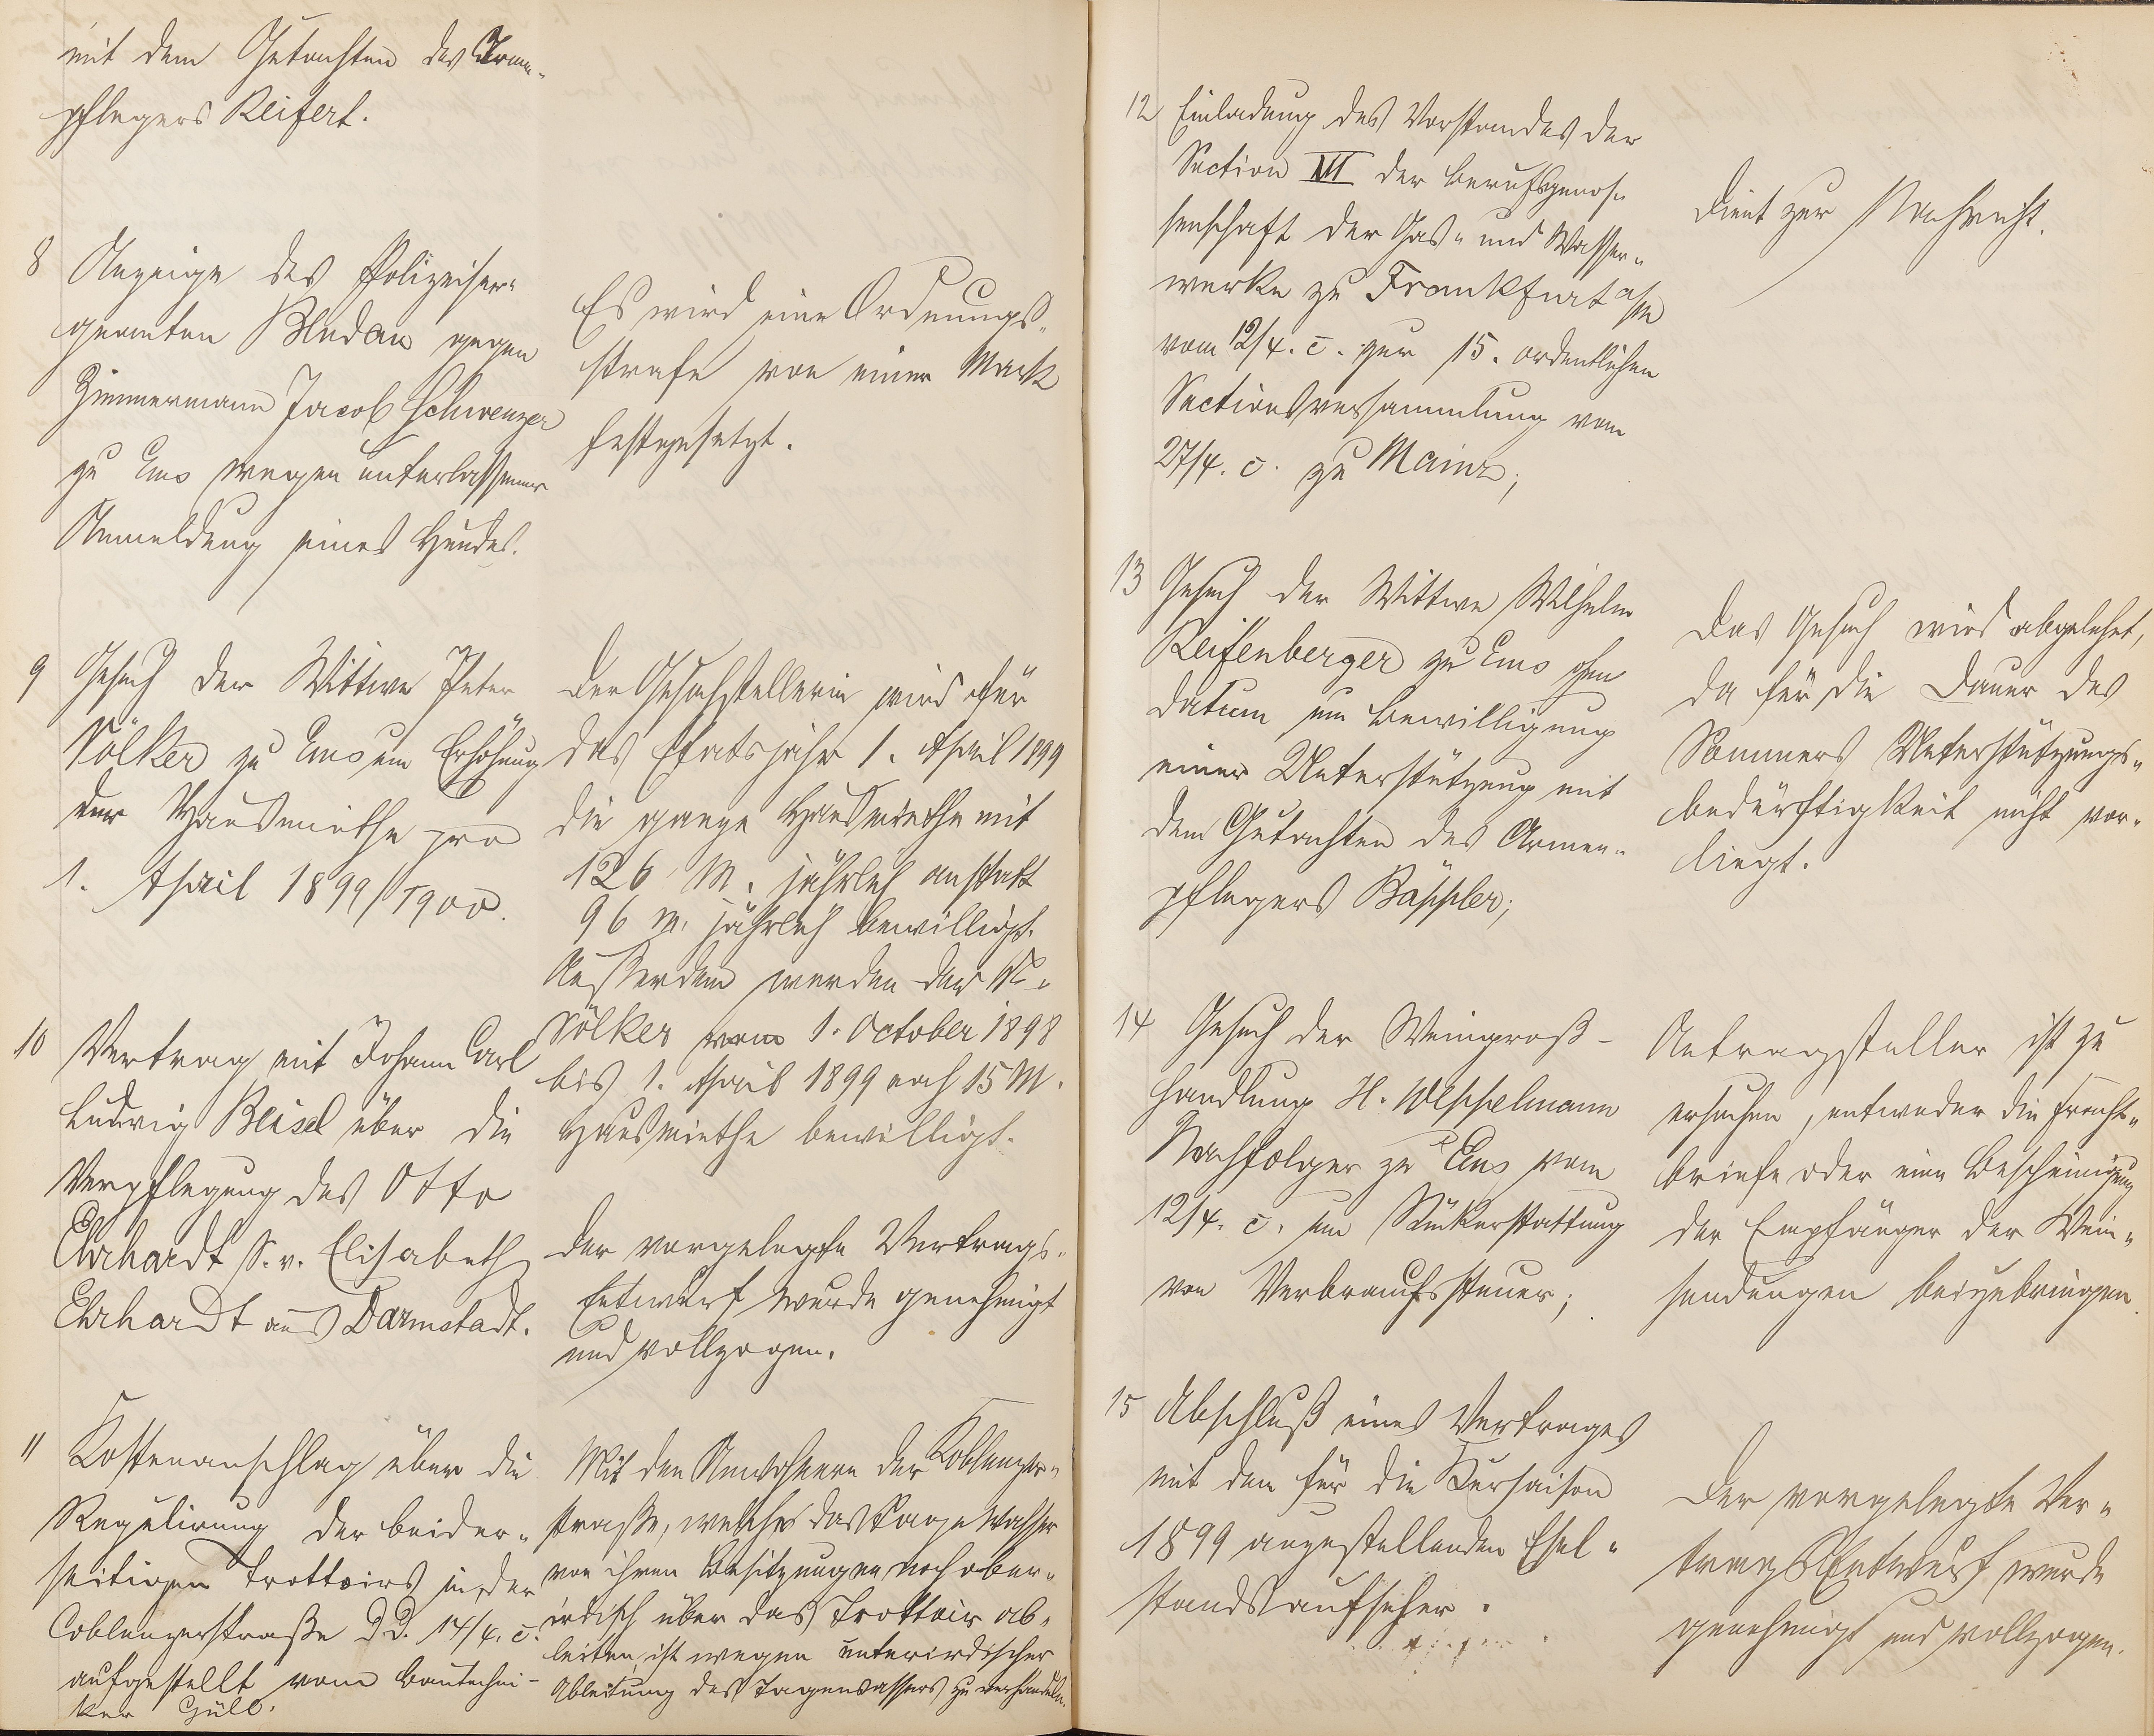 mit dem Gutachten des Armen-
pflegers Reifert.
8 Anzeige des Polizeiser-
geanten Bludau gegen
Zimmermann Jacob Schwenzer
zu Ems wegen unterlassener
Anmeldung eines Hundes.
Es wird eine Ordnungs-
strafe von einer Mark
festgesetzt.
9 Gesuch der Wittwe Peter
Völker zu Ems um Erhöhung
der Hausmiethe pro
1. April 1899/1900.
Der Gesuchstellerin wird für
das Etatsjahr 1. April 1899
die ganze Hausmiethe mit
126 M. jährlich anstatt
96 M. jährlich bewilligt.
Außerdem werden der W.
Völker vom 1. October 1898
bis 1. April 1899 noch 15 M.
Hausmiethe bewilligt.
10 Vertrag mit Johann Carl
Ludwig Beisel über die
Verpflegung des Otto
Ehrhardt S. v. Elisabeth
Ehrhardt aus Darmstadt.
Der vorgelegte Vertrags-
Entwurf wurde genehmigt
und vollzogen.
11 Kostenanschlag über die
Regulirung der beider-
seitigen Trottoirs in der
Coblenzerstraße d.d. 14/4. c.
aufgestellt vom Bautechni-
ker Güll.
Mit den Anwohnern der Koblenzer-
straße, welche das Tagewasser
von ihren Besitzungen noch ober-
irdisch über das Trottoir ab-
leiten, ist wegen unterirdischer
Ableitung des Tagewassers zu verhandeln.
12 Einladung des Vorstandes der
Section VII der Berufsgenos-
senschaft der Gas- und Wasser-
werke zu Frankfurt a/M
vom 12/4. c. zur 15. ordentlichen
Sectionsversammlung vom
27/4. c. zu Mainz;
Dient zur Nachricht.
13 Gesuch der Wittwe Wilhelm
Reifenberger zu Ems ohne
Datum um Bewilligung
einer Unterstützung mit
dem Gutachten des Armen-
pflegers Bäppler;
Das Gesuch wird abgelehnt,
da für die Dauer des
Sommers Unterstützungs-
bedürftigkeit nicht vor-
liegt.
14 Gesuch der Weingroß-
handlung H. Weppelmann
Nachfolger zu Ems vom
12/4. c. um Rückerstattung
von Verbrauchssteuer;
Antragsteller ist zu
ersuchen, entweder die Fracht-
briefe oder eine Bescheinigung
der Empfänger der Wein-
sendungen beizubringen.
15 Abschluß eines Vertrages
mit dem für die Kursaison
1899 anzustellenden Esel-
standsaufseher.
Der vorgelegte Ver-
tragsentwurf wurde
genehmigt und vollzogen.